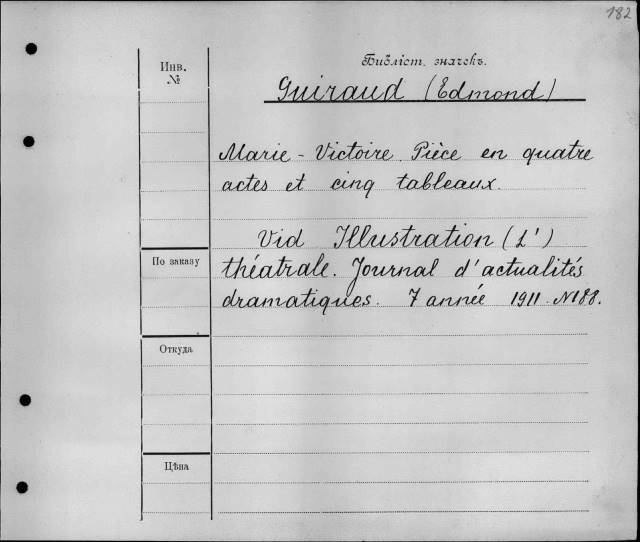 182
Инв.
№
Библіот. значекъ.
Guiraud (Edmond)
Marie-Victoire. Pièce en quatre
actes et cinq tableaux.
Vid Illustration (L')
théatrale. Journal d'actualités
По заказу
dramatiques. 7 année 1911. N188.
Откуда
Цѣна